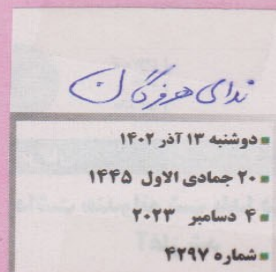 ندای هرمزگان
دوشنبه ۱۳ آذر ۱۴۰۲
۲۰ جمادی الاول ۱۴۴۵
۴ دسامبر ۲۰۲۳
شماره ۴۲۹۷